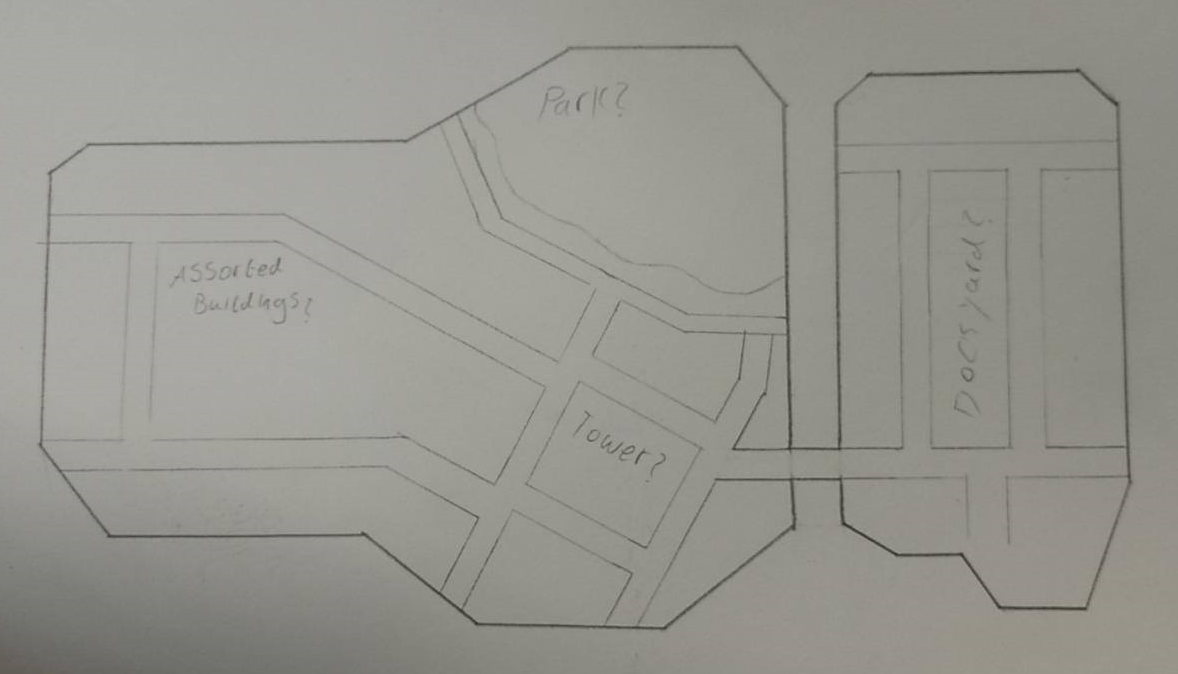 Park?
Assorted
Buildings?
Tower?
Docsyard?